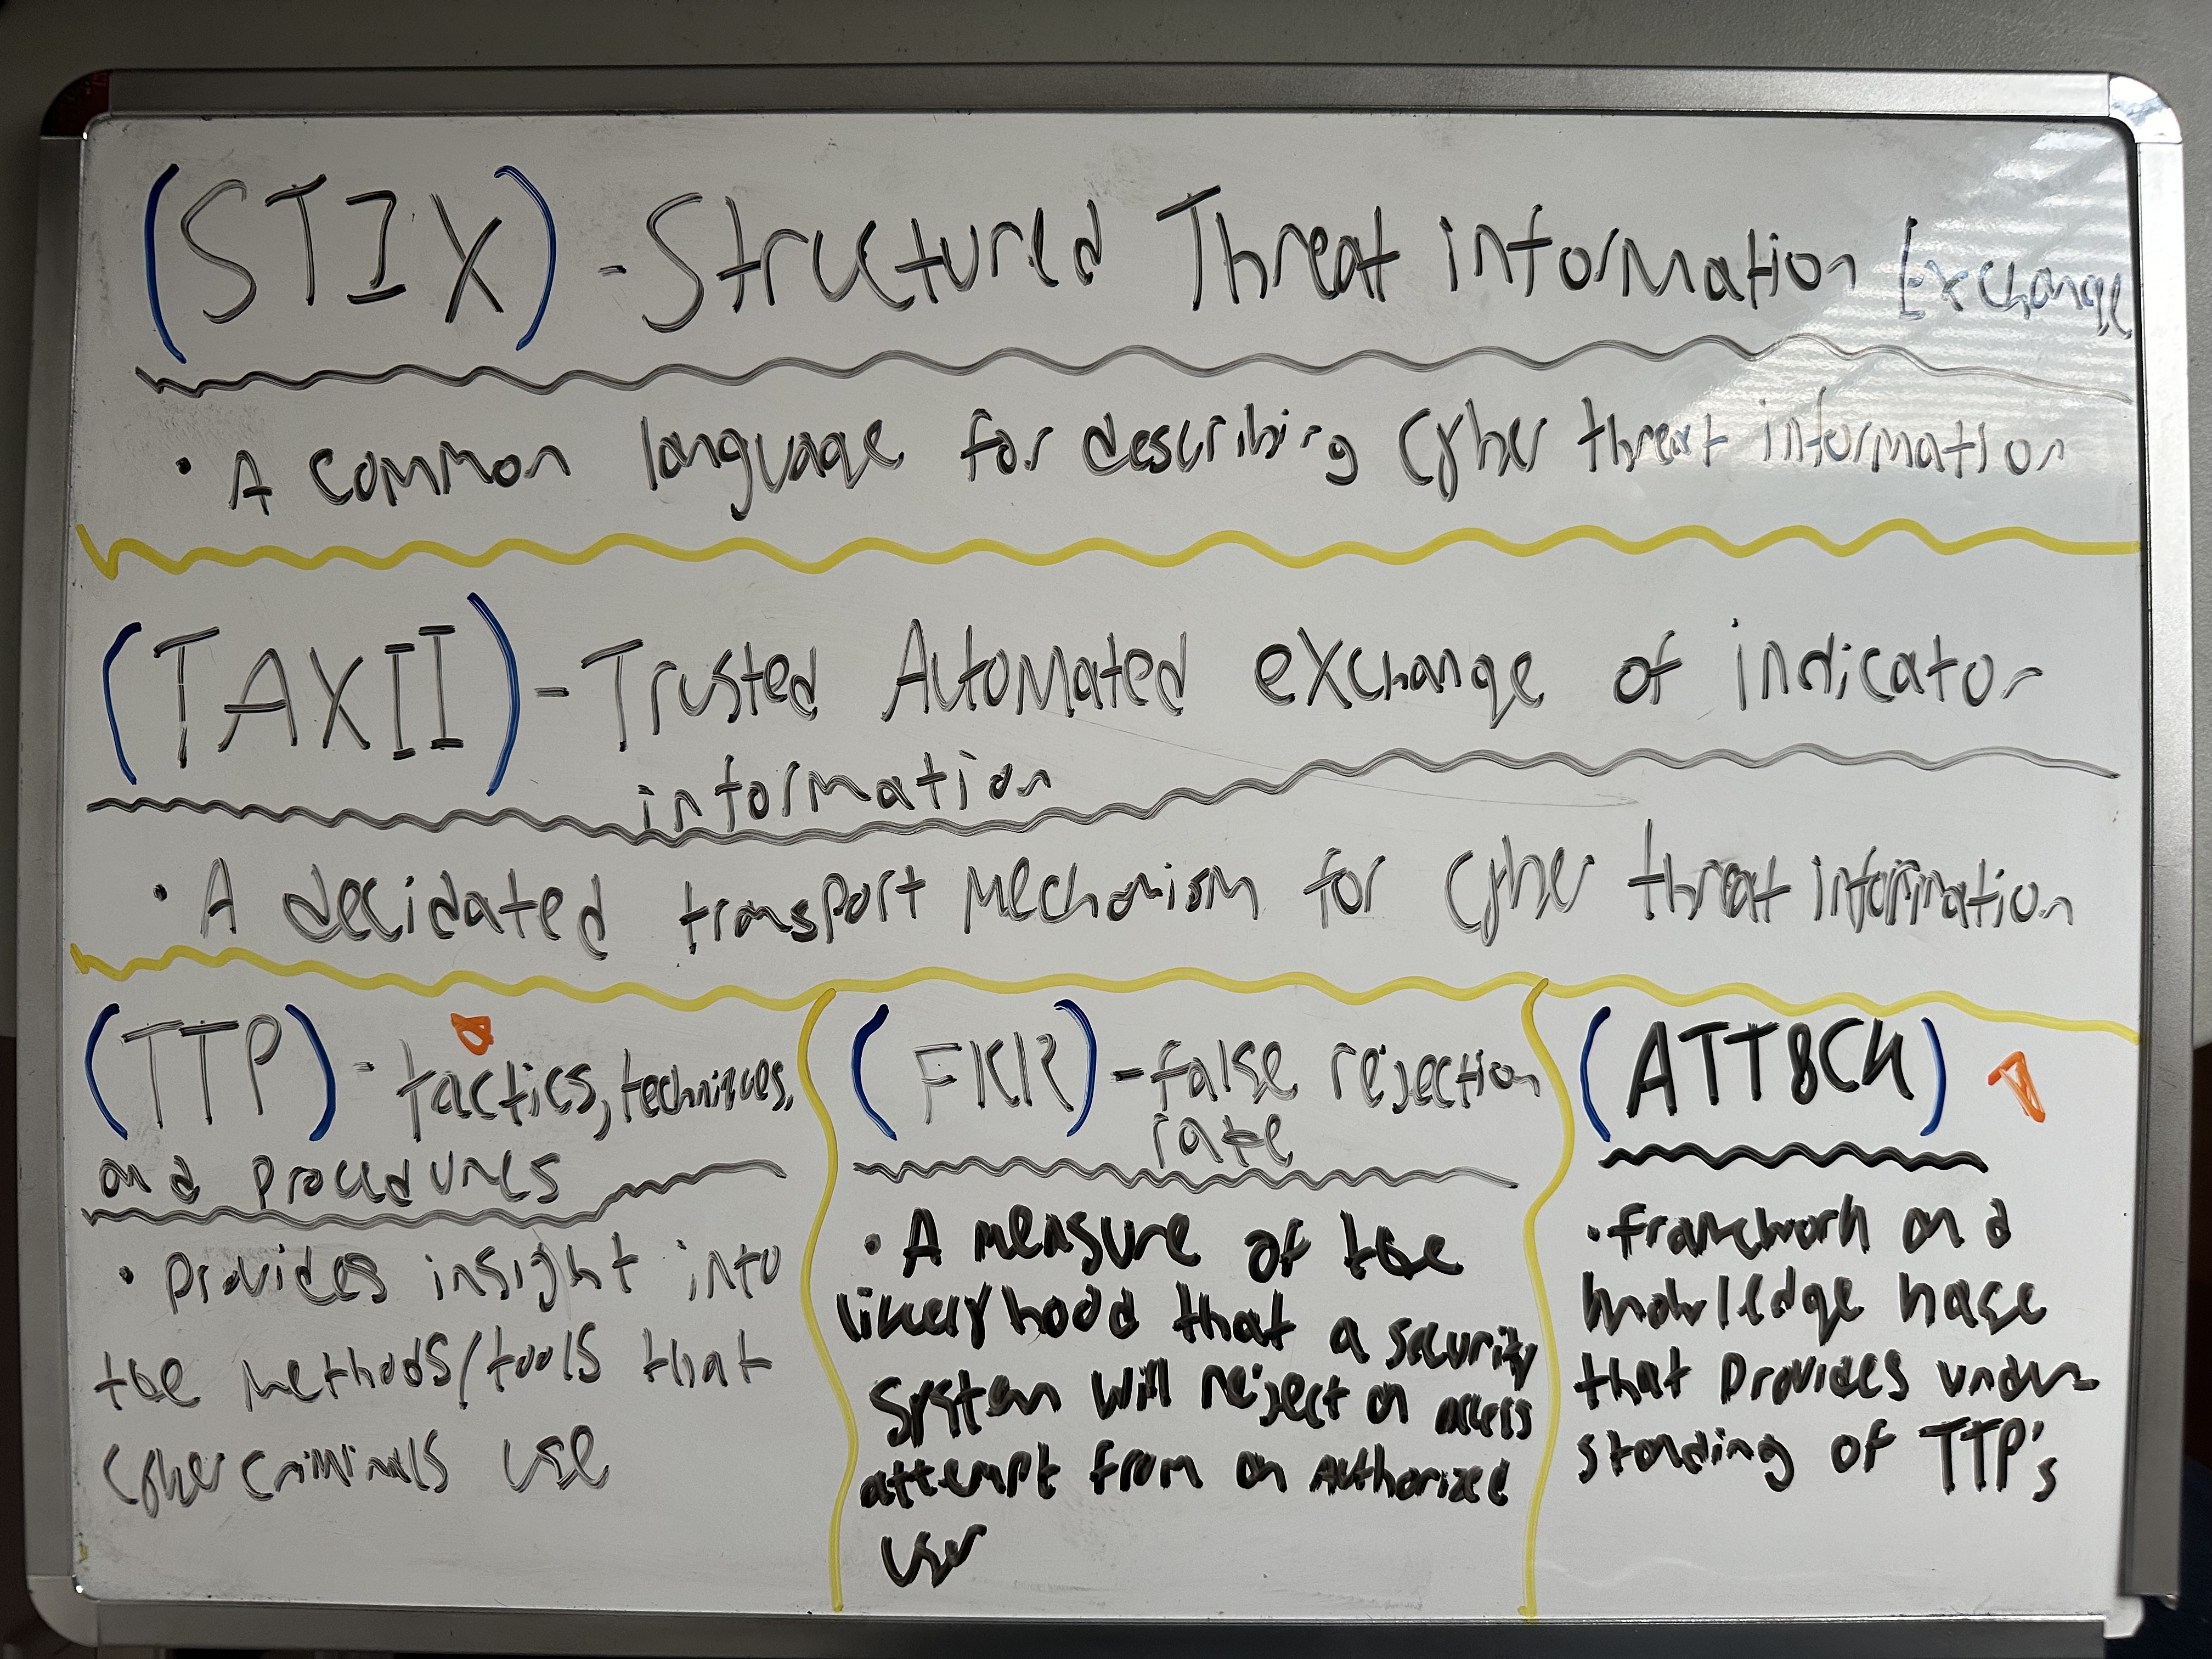 (STIX) - Structured Threat information Exchange
• A common language for describing Cyber threat information
(TAXII) - Trusted Automated exchange of indicator
information
• A decidated transport Mechanism for Cyber threat information
(TTP) - tactics, techniques,
and procedures
• provides insight into
the methods/tools that
Cyber criminals use
(FRR) - false rejection
rate
• A measure of the
likelyhood that a security
System will reject an access
attempt from an Authorized
User
(ATT&CK)
• framework and
knowledge base
that provides under-
standing of TTP's